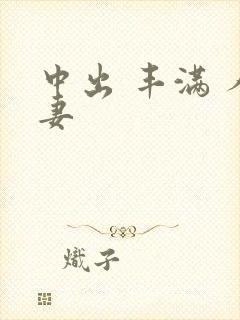 中出 丰满 人
妻
熾子